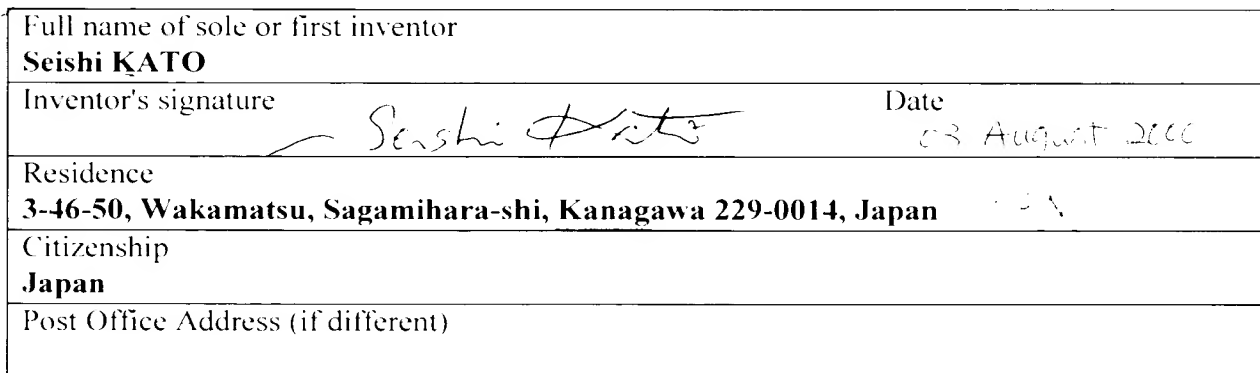 Full name of sole or first inventor
Seishi KATO
Inventor's signature Seishi Kato Date 03 August 2000
Residence
3-46-50, Wakamatsu, Sagamihara-shi, Kanagawa 229-0014, Japan
Citizenship
Japan
Post Office Address (if different)